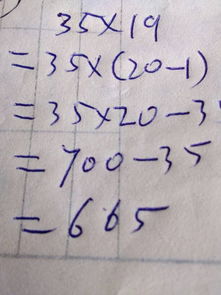 35×19
=35×(20-1)
=35×20-3
=700-35
=665